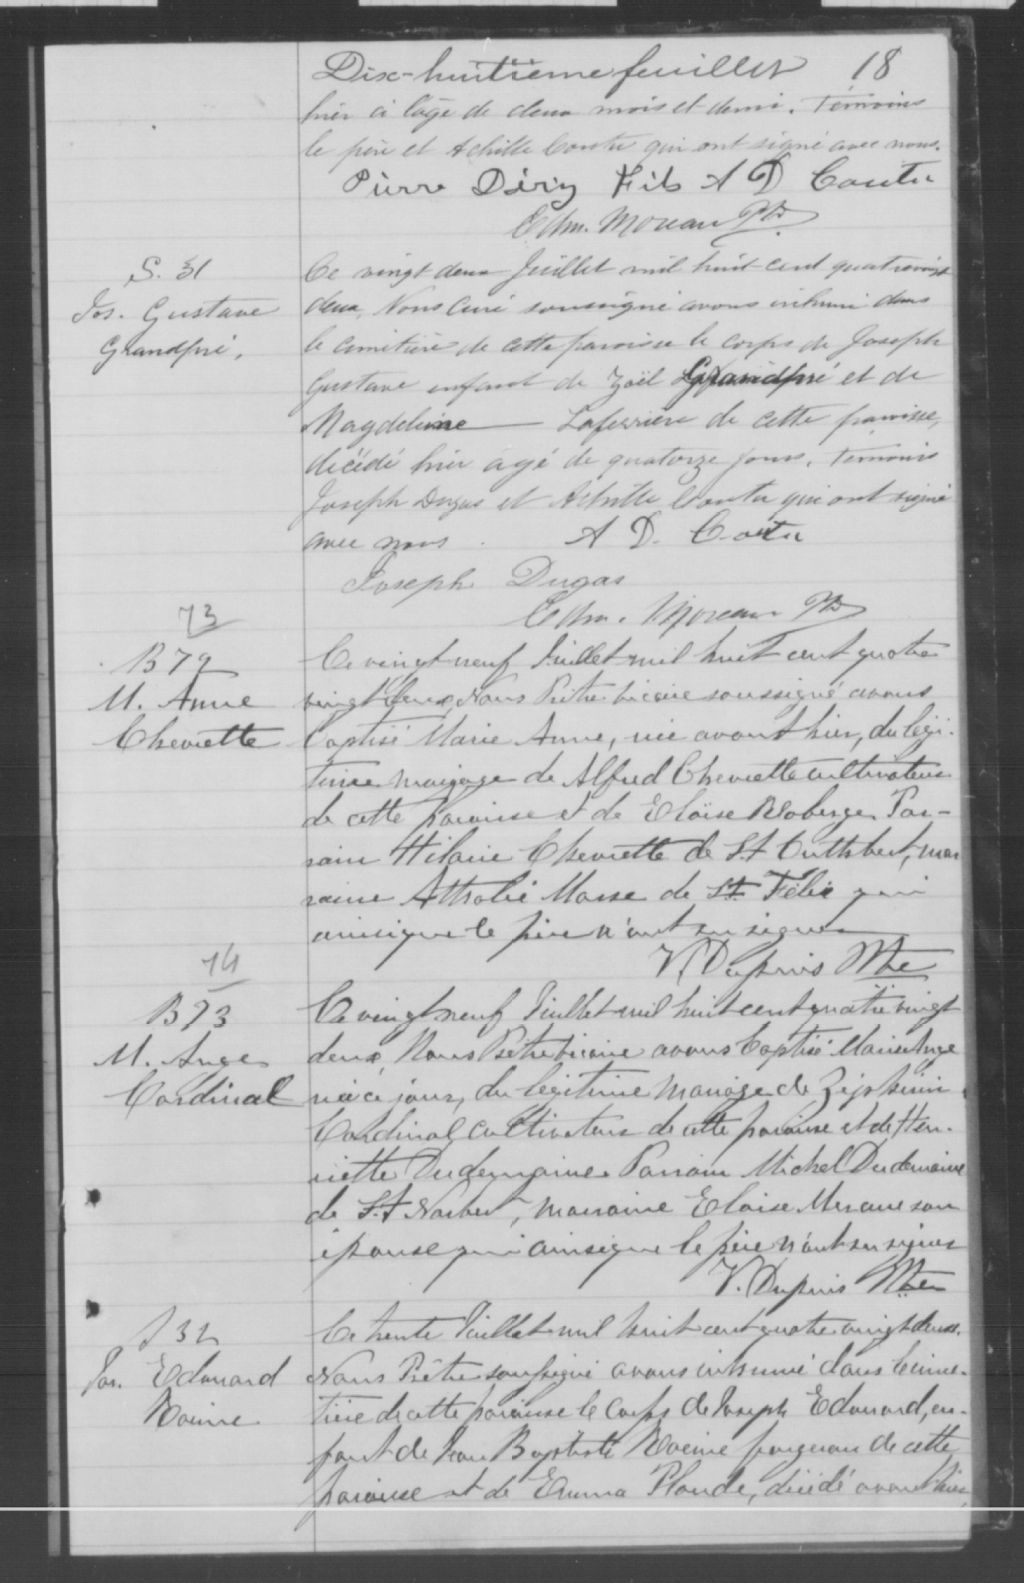 Dix-huitième feuillet 18
hier à l'âge de deux mois et demi. Témoins
le père et Achille Coutu qui ont signé avec nous.
Pierre Déry Fils A D Coutu
Edm. Moreau Ptr
S. 31
Jos. Gustave
Grandpré.
Ce vingt deux Juillet mil huit cent quatrevingt
deux, Nous Curé soussigné avons inhumé dans
le cimetière de cette paroisse le corps de Joseph
Gustave enfant de Zoël Grandpré et de
Magdeleine Laferrière de cette paroisse,
décédé hier agé de quatorze jours. Temoins
Joseph Dugas et Achille Coutu qui ont signé
avec nous. A D. Coutu
Joseph Dugas
Edm. Moreau Ptr
73
B 72
M. Anne
Chevrette
Ce vingt neuf Juillet mil huit cent quatre
vingt deux, Nous Prêtre vicaire soussigné avons
baptisé Marie Anne, née avant hier, du légi-
time mariage de Alfred Chevrette cultivateur
de cette paroisse et de Eloïse Roberge. Par-
rain Hilaire Chevrette de St Cuthbert, mar
raine Attralie Masse de St. Félix qui
ainsi que le père n'ont su signer
V. Dupuis Ptre
74
B 73
M. Ange
Cardinal
Ce vingt neuf Juillet mil huit cent quatre vingt
deux, Nous Prêtre vicaire avons baptisé Marie Ange
née ce jour, du légitime mariage de Zéphirin
Cardinal cultivateur de cette paroisse et de Hen-
riette Dudemaine. Parrain Michel Dudemaine
de St Norbert, marraine Eloise son
épouse qui ainsi que le père n'ont su signer
V. Dupuis Ptre
S 32
Jos. Edouard
Racine
Ce trente Juillet mil huit cent quatre vingt deux.
Nous Prêtre soussigné avons inhumé dans le cime-
tière de cette paroisse le corps de Joseph Edouard, en-
fant de Jean Baptiste Racine forgeron de cette
paroisse et de Emma Plande, décédé avant hier,